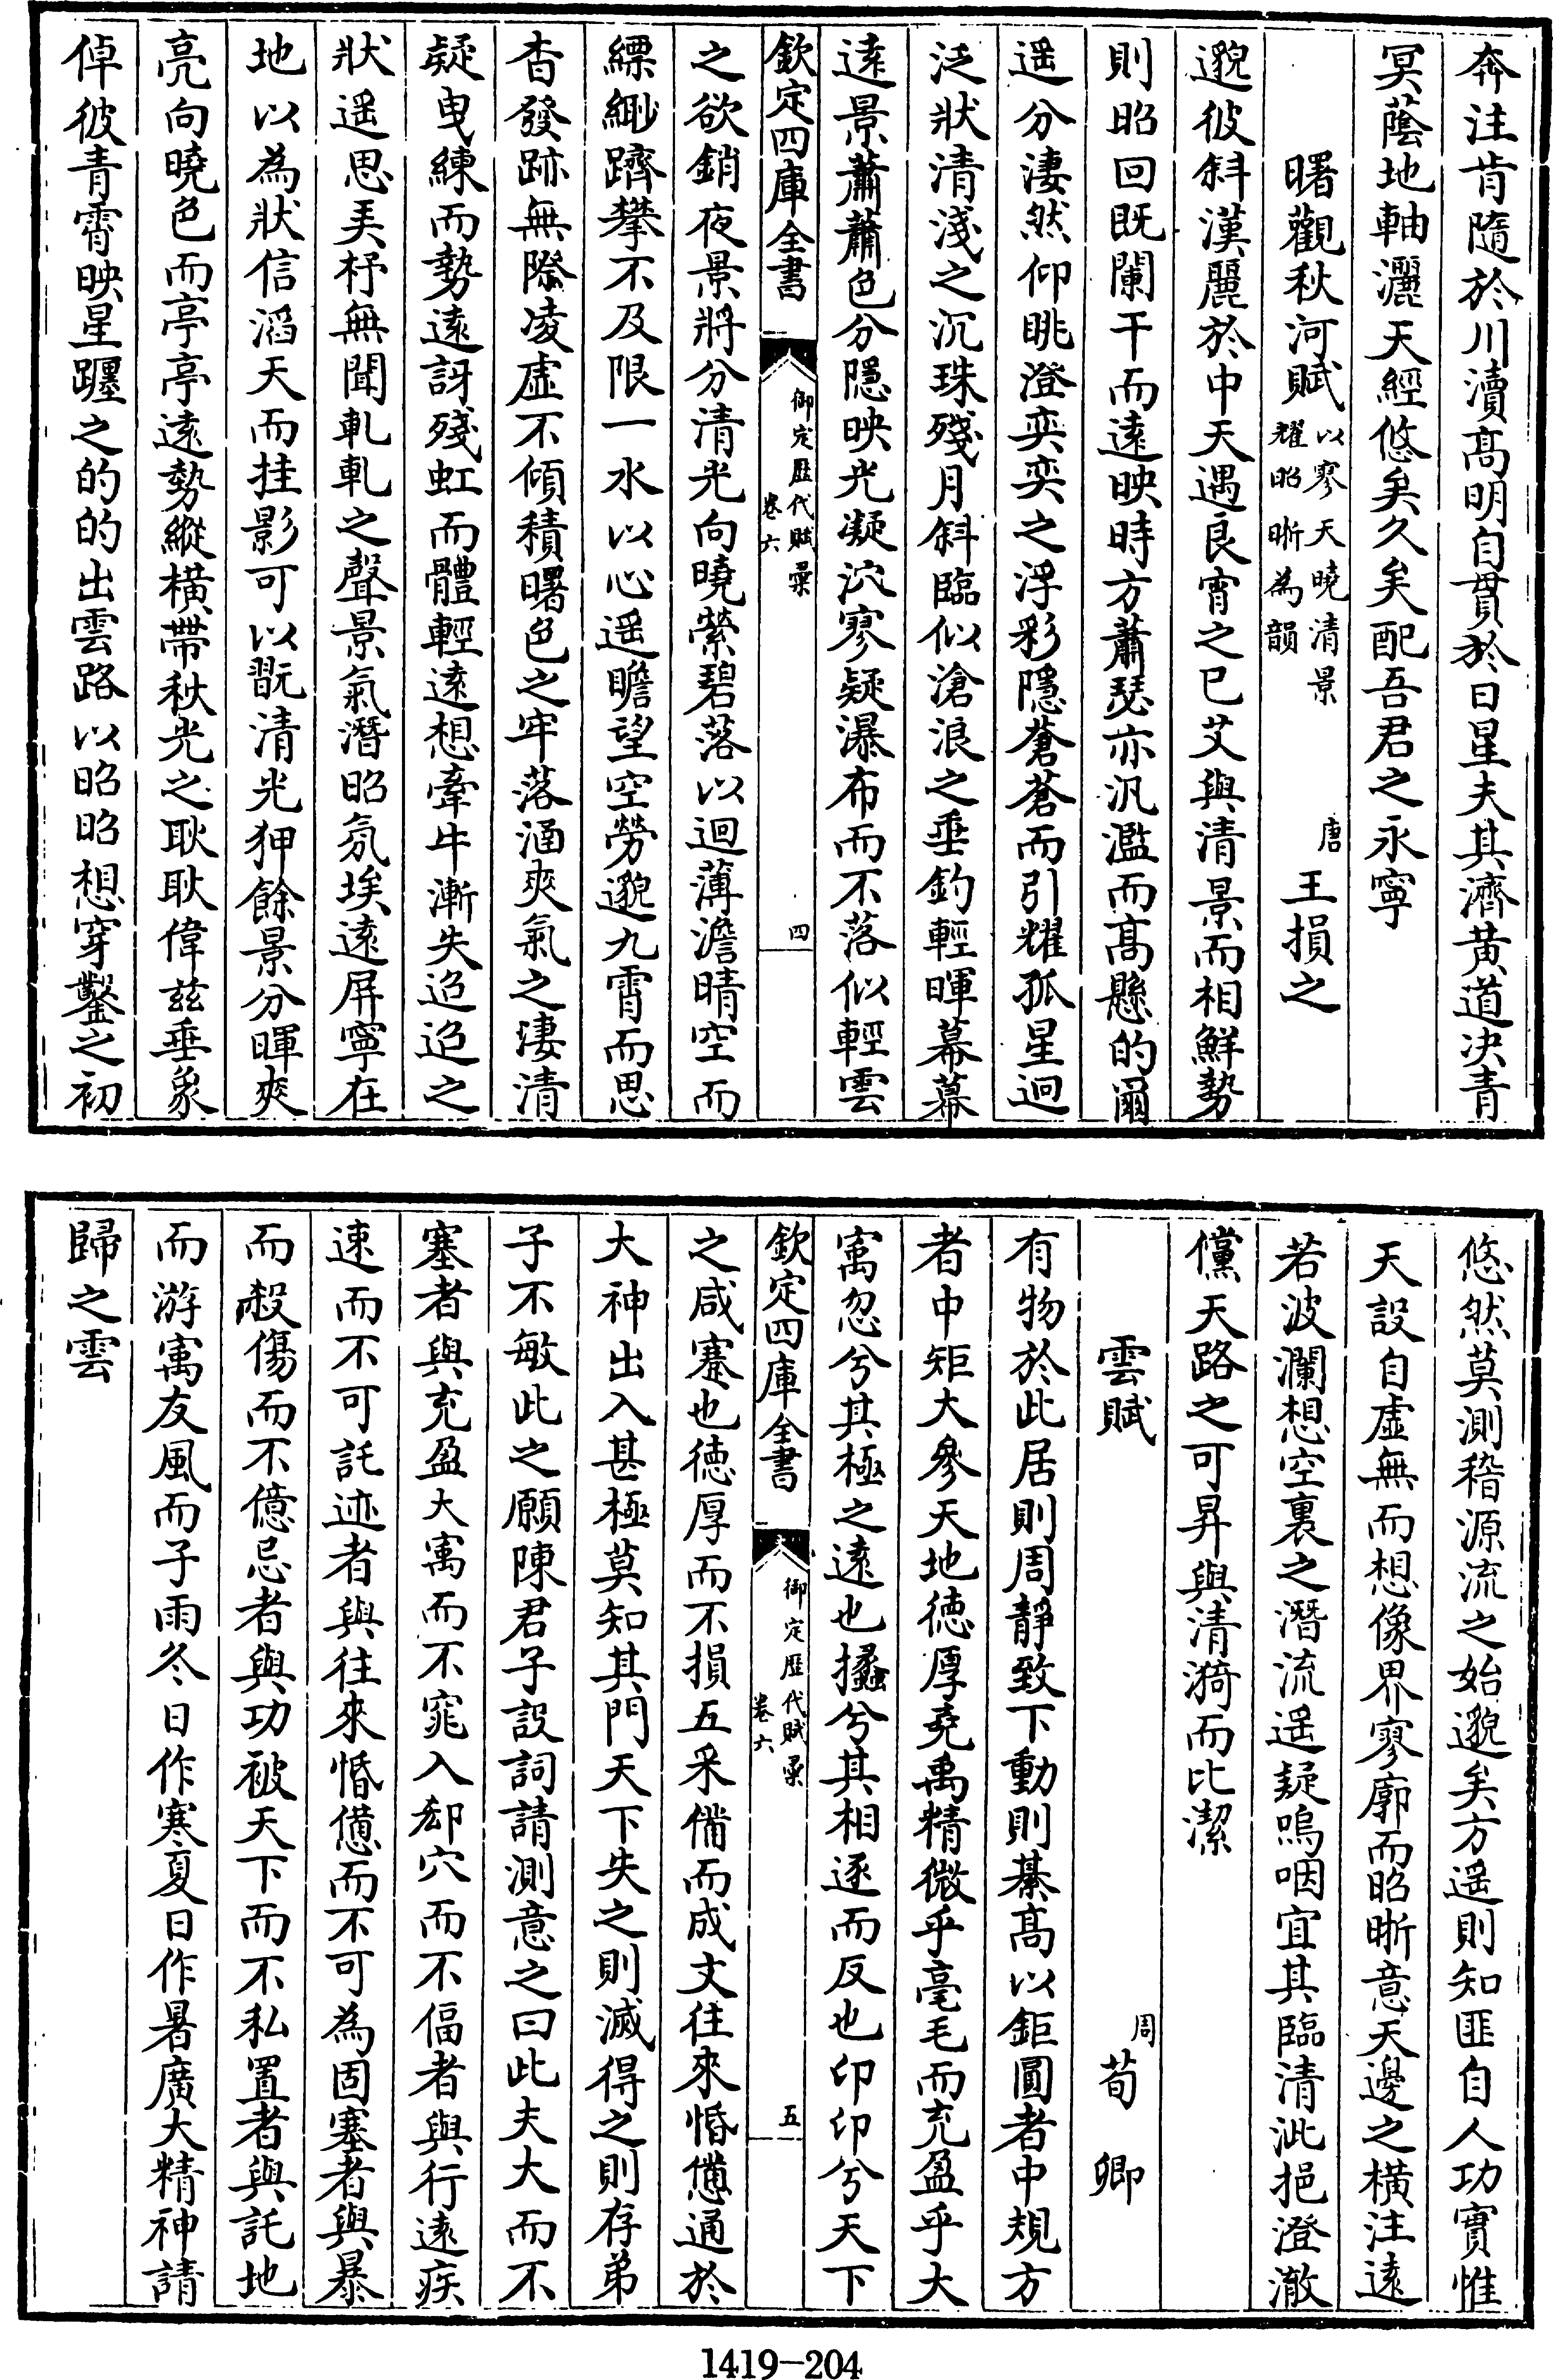 奔注肯隨於川瀆高明自貫於日星夫其濟黄道决青
冥蔭地軸灑天經悠矣久矣配吾君之永寧
曙觀秋河賦以寥天曉清景耀昭晰為韻 唐王損之
邈彼斜漢麗於中天遇良宵之已艾與清景而相鮮勢
則昭回既闌干而遠映時方蕭瑟亦汎濫而髙懸的爾
遥分淒然仰眺澄奕奕之浮彩隱蒼蒼而引耀孤星迴
泛狀清淺之沉珠殘月斜臨似滄浪之垂釣輕暉幕幕
遠景蕭蕭色分隱映光凝泬寥疑瀑布而不落似輕雲
欽定四庫全書 御定歴代賦彙卷六 四
之欲銷夜景將分清光向曉縈碧落以迴薄澹晴空而
縹緲躋攀不及限一水以心遥瞻望空勞邈九霄而思
杳發跡無際凌虚不傾積曙色之牢落涵爽氣之淒清
疑曳練而勢遠訝殘虹而體輕遠想牽牛漸失迢迢之
狀遥思弄杼無聞軋軋之聲景氣潛昭氛埃遠屏寧在
地以為狀信滔天而挂影可以翫清光狎餘景分暉爽
亮向曉色而亭亭遠勢縱横帶秋光之耿耿偉兹垂象
倬彼青霄映星躔之的的出雲路以昭昭想穿鑿之初
悠然莫測稽源流之始邈矣方遥則知匪自人功實惟
天設自虚無而想像界寥廓而昭晰意天邊之横注遠
若波瀾想空裏之潛流遥疑嗚咽宜其臨清泚挹澄澈
儻天路之可昇與清漪而比潔
雲賦 周荀卿
有物於此居則周靜致下動則綦髙以鉅圓者中規方
者中矩大參天地徳厚堯禹精微乎毫毛而充盈乎大
㝢忽兮其極之遠也攭兮其相逐而反也卬卬兮天下
欽定四庫全書 御定歴代賦彙卷六 五
之咸蹇也徳厚而不損五采備而成文往來惛憊通於
大神出入甚極莫知其門天下失之則滅得之則存弟
子不敏此之願陳君子設詞請測意之曰此夫大而不
塞者與充盈大㝢而不窕入郤穴而不偪者與行遠疾
速而不可託迹者與往來惛憊而不可為固塞者與暴
而殺傷而不億忌者與功被天下而不私置者與託地
而游㝢友風而子雨冬日作寒夏日作暑廣大精神請
歸之雲
1419-204